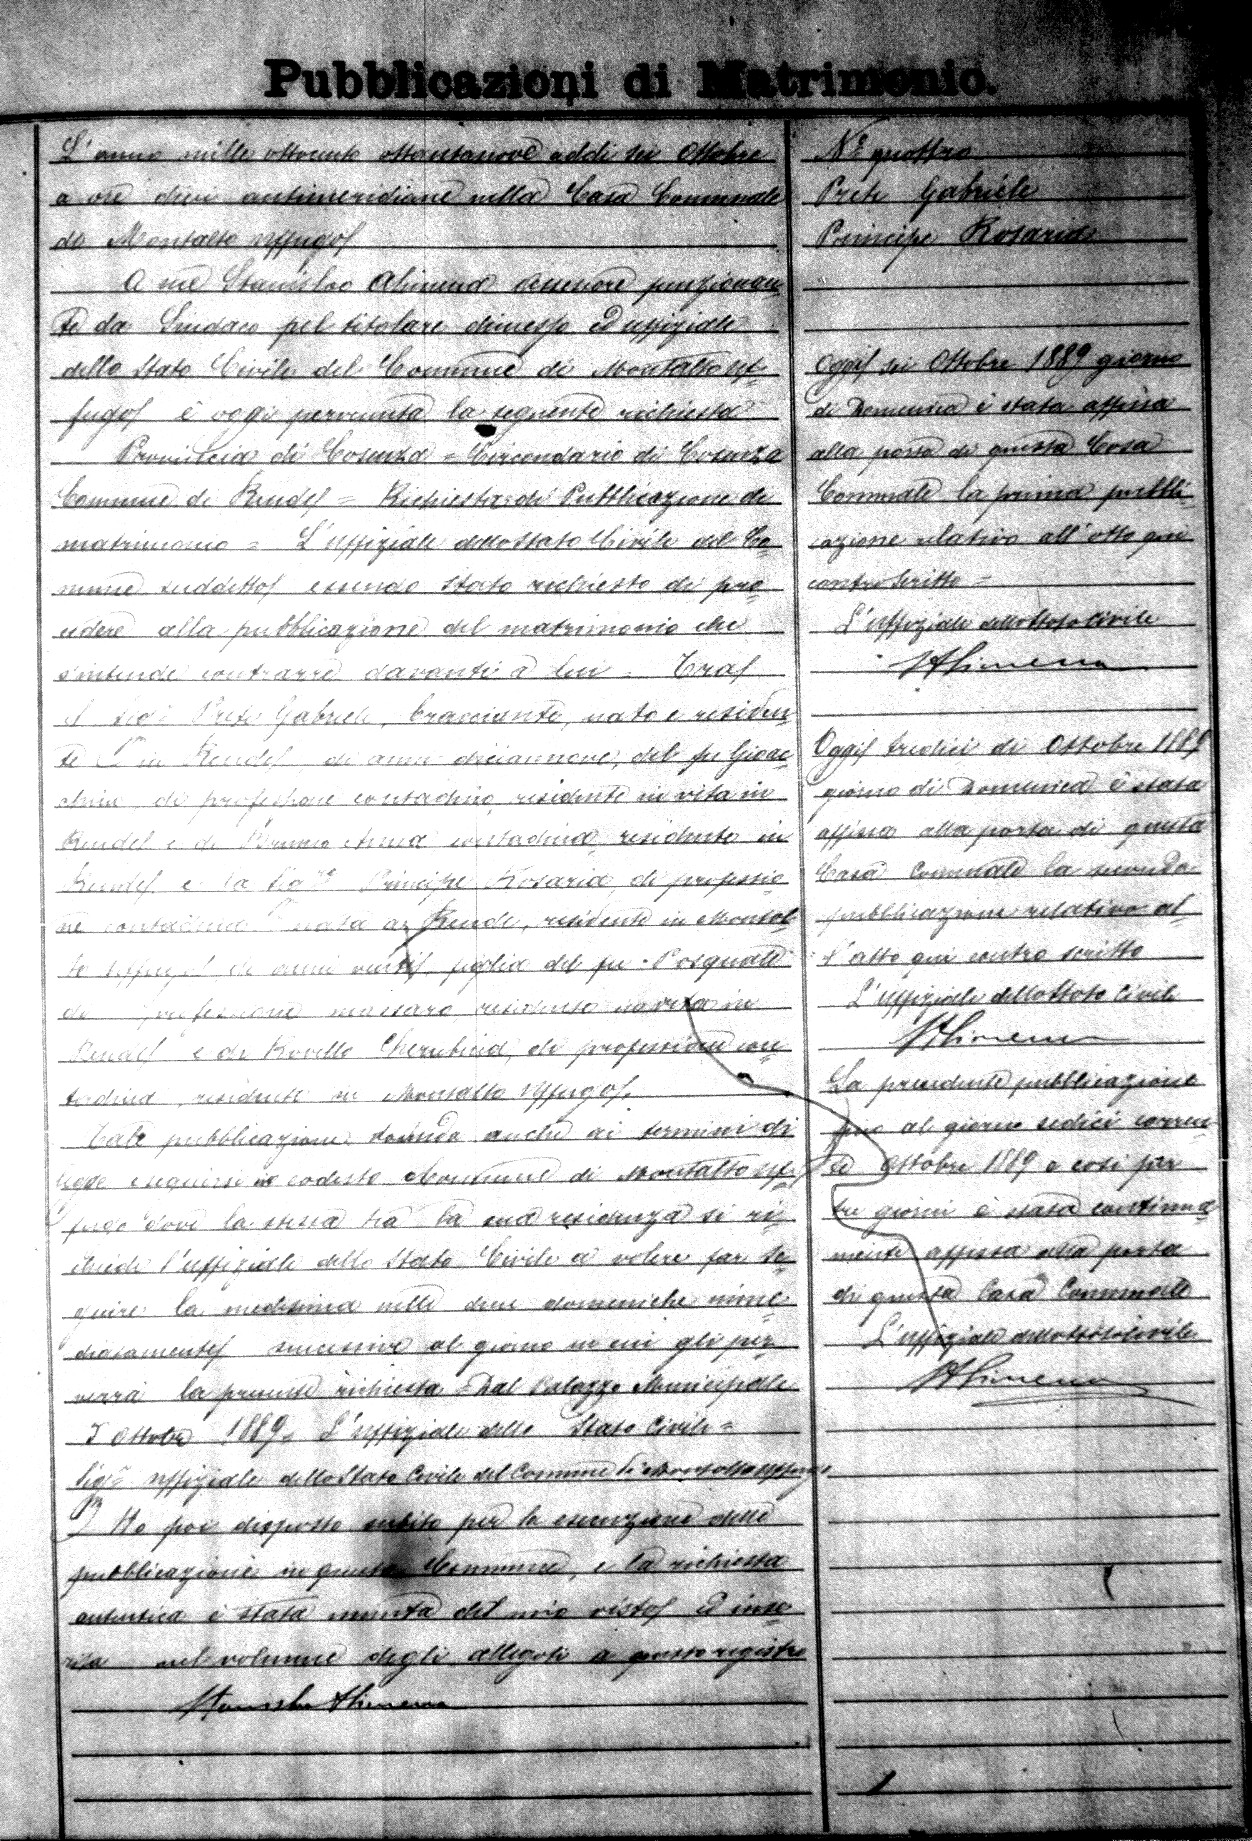 Pubblicazioni di Matrimonio.
L'anno mille ottocento ottantanove addi sei Ottobre
a ore dieci antimeridiane nella Casa Comunale
di Montalto Uffugo
A me Stanislao Alimena Assessore funzionan=
te da Sindaco pel titolare dimesso ed uffiziale
dello Stato Civile del Comune di Montalto Uf=
fugo è oggi pervenuta la seguente richiesta
Provincia di Cosenza = Circondario di Cosenza
Comune di Rende = Richiesta di Pubblicazione di
matrimonio = L'uffiziale dello Stato Civile del Co=
mune suddetto essendo stato richiesto di pro=
cedere alla pubblicazione del matrimonio che
s'intende contrarre davanti a lui = Tra
il Preti Gabriele, bracciante, nato e residen=
te in Rende, di anni diciannove, del fu Gioac=
chino, di professione contadino, residente in vita in
Rende e di Bruno Anna contadina residente in
Rende e la Sigra Principe Rosaria, di professio=
ne contadina nata a Rende, residente in Montal=
to Uffugo di anni venti figlia del fu Pasquale
di professione massaro, residente in vita in
Rende e di Rovello Cherubina, di professione con=
tadina, residente in Montalto Uffugo.
Tale pubblicazione dovendo anche ai termini di
legge eseguirsi in codesto Comune di Montalto Uf=
fugo dove la stessa ha la sua residenza si ri=
chiede l'uffiziale dello Stato Civile a volere far se=
guire la medesima nelle due domeniche imme
diatamente successive al giorno in cui gli per=
verrà la presente richiesta = Dal Palazzo Municipale
5 Ottobre 1889 = L'uffiziale dello Stato Civile =
Sigr uffiziale dello Stato Civile del Comune di Montalto Uffugo
Ho poi disposto subito per la esecuzione delle
pubblicazioni in questo Comune, e la richiesta
autentica è stata munita del mio visto ed inse
rita nel volume degli allegati a questo registro
Stanislao Alimena
No quattro
Preti Gabriele
Principe Rosaria
Oggi sei Ottobre 1889 giorno
di Domenica è stata affissa
alla porta di questa Casa
Comunale la prima pubbli
cazione relativa all'atto qui
controscritto =
L'uffiziale dello Stato Civile
Alimena
Oggi tredici di Ottobre 1889
giorno di Domenica è stata
affissa alla porta di questa
Casa Comunale la seconda
pubblicazione relativa al=
l'atto qui contro scritto
L'uffiziale dello Stato Civile
Alimena
La precedente pubblicazione
fino al giorno sedici corren=
te Ottobre 1889 e così per
tre giorni è stata continua=
mente affissa alla porta
di questa Casa Comunale
L'uffiziale dello Stato Civile
Alimena